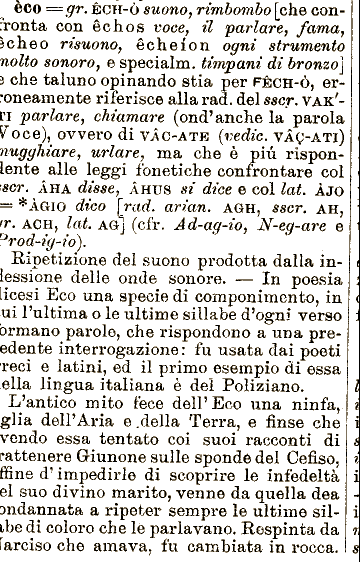 èco = gr. ÊCH-Ò suono, rimbombo [che con-
fronta con êchos voce, il parlare, fama,
êcheo risuono, êcheîon ogni strumento
molto sonoro, e specialm. timpani di bronzo]
e che taluno opinando stia per FÊCH-Ò, er-
roneamente riferisce alla rad. del sscr. VAK'-
TI parlare, chiamare (ond'anche la parola
Voce), ovvero di VÂC-ATE (vedic. VÂÇ-ATI)
mugghiare, urlare, ma che è più rispon-
dente alle leggi fonetiche confrontare col
sscr. ÀHA disse, ÀHUS si dice e col lat. ÀJO
= *ÀGIO dico [rad. arian. AGH, sscr. AH,
gr. ACH, lat. AG] (cfr. Ad-ag-io, N-eg-are e
Prod-ig-io).
Ripetizione del suono prodotta dalla in-
flessione delle onde sonore. — In poesia
dicesi Eco una specie di componimento, in
cui l'ultima o le ultime sillabe d'ogni verso
formano parole, che rispondono a una pre-
cedente interrogazione: fu usata dai poeti
greci e latini, ed il primo esempio di essa
nella lingua italiana è del Poliziano.
L'antico mito fece dell' Eco una ninfa,
figlia dell'Aria e della Terra, e finse che
avendo essa tentato coi suoi racconti di
trattenere Giunone sulle sponde del Cefiso,
affine d' impedirle di scoprire le infedeltà
del suo divino marito, venne da quella dea
condannata a ripeter sempre le ultime sil-
labe di coloro che le parlavano. Respinta da
Narciso che amava, fu cambiata in rocca.